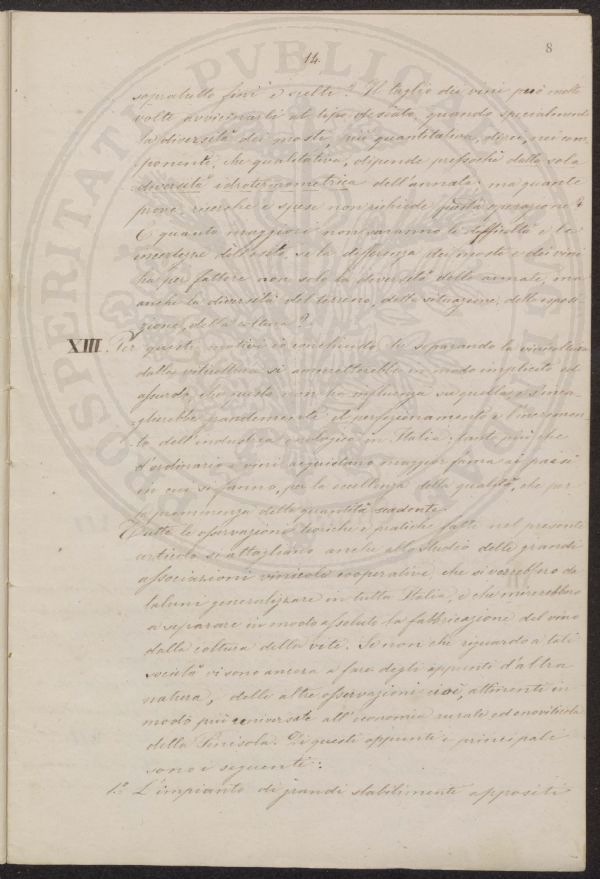 8
14.
soprattutto fini e scelti? Il taglio dei vini può molte
volte avvicinarli al tipo desiato, quando specialmente
la diversità dei mosti, più quantitativa, direi, nei com-
ponenti, che qualitativa, dipende pressoché dalla sola
diversità idrotermometrica dell'annata; ma quante
prove, ricerche e spese non richiede questa operazione?
E quanto maggiori non saranno le difficoltà e le
incertezze dell'esito, se la differenza dei mosti e dei vini
ha per fattore non solo la diversità delle annate, ma
anche la diversità del terreno, della situazione, dell'esposi-
zione, della coltura?
XIII. Per questi motivi io conchiudo che separando la vinicoltura
dalla viticoltura si ammetterebbe in modo implicito ed
assurdo, che questa non ha influenza su quella e s'inca-
glierebbe grandemente il perfezionamento e l'incremen-
to dell'industria enologica in Italia; tanto più che
d'ordinario i vini acquistano maggior fama ai paesi
in cui si fanno, per la eccellenza della qualità, che per
la prominenza della quantità scadente.
Tutte le osservazioni teoriche e pratiche fatte nel presente
articolo si attagliano anche allo studio delle grandi
associazioni vinicole cooperative, che si vorrebbero da
taluni generalizzare in tutta Italia, e che mirerebbero
a separare in modo assoluto la fabbricazione del vino
dalla coltura della vite. Se non che riguardo a tali
società vi sono ancora a fare degli appunti d'altra
natura, delle altre osservazioni cioè, attinenti in
modo più universale all'economia rurale ed enoviticola
della Penisola. Di questi appunti i principali
sono i seguenti:
1.° L'impianto di grandi stabilimenti appositi
PROSPERITATI PVBLICAE